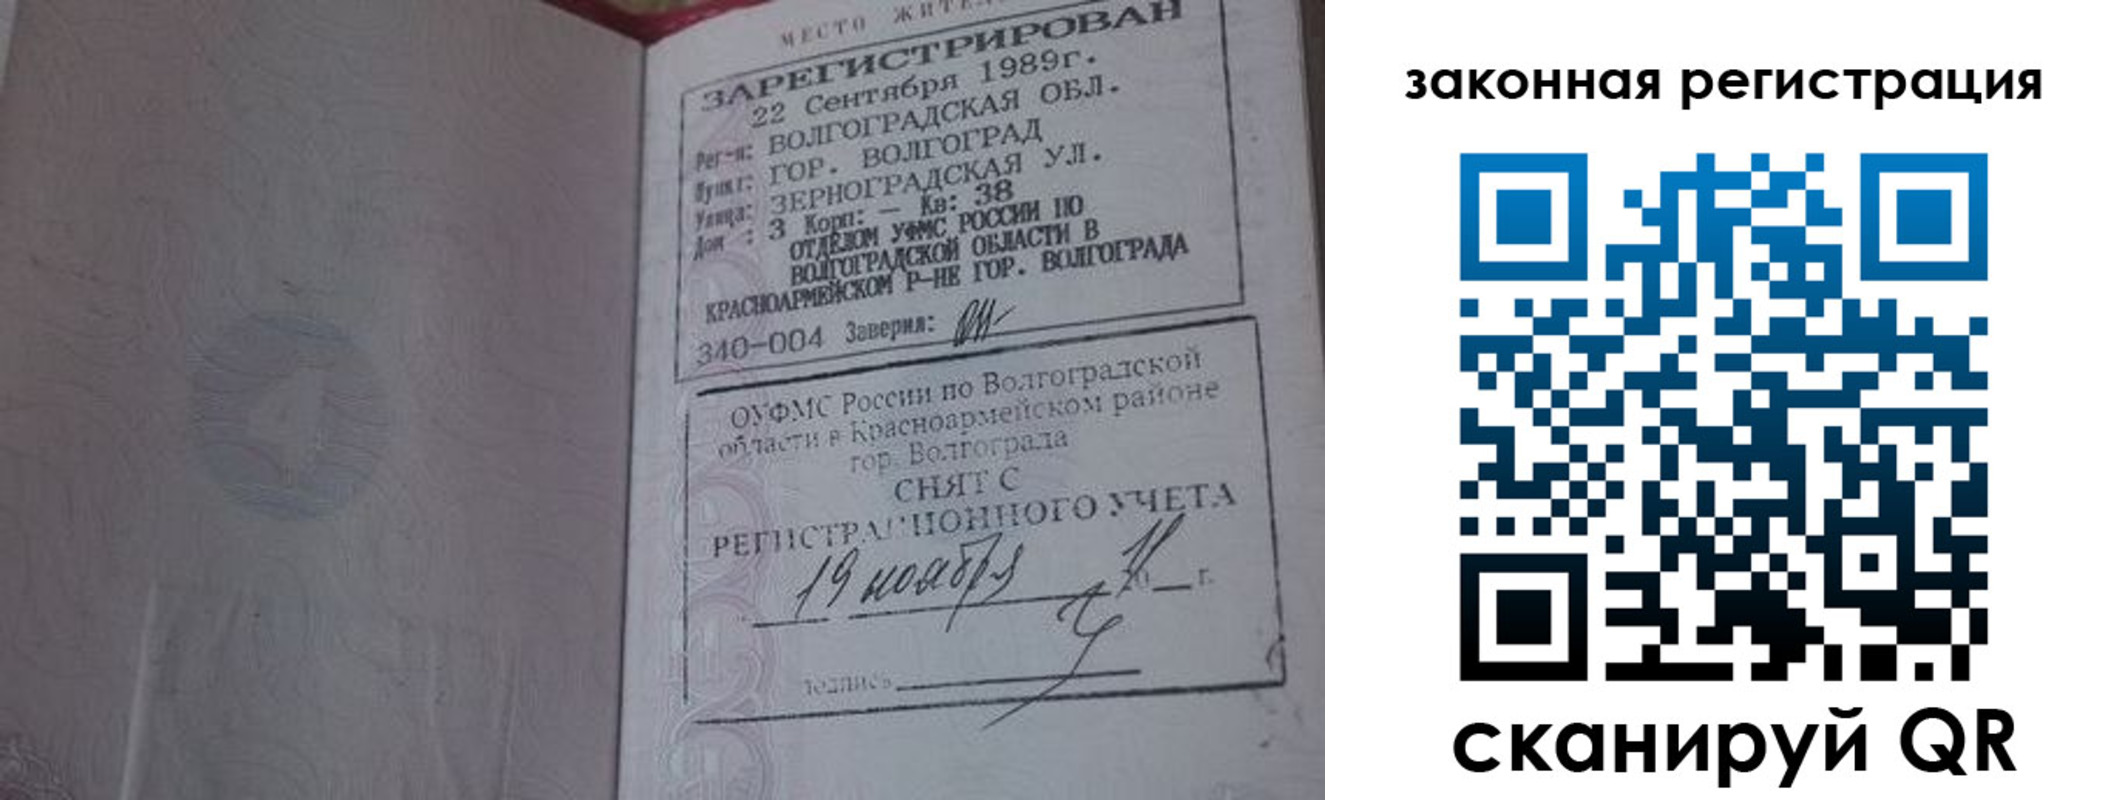 МЕСТО ЖИТЕЛ
ЗАРЕГИСТРИРОВАН
22 Сентября 1989г.
Рег-н: ВОЛГОГРАДСКАЯ ОБЛ.
Пункт: ГОР. ВОЛГОГРАД
Улица: ЗЕРНОГРАДСКАЯ УЛ.
Дом : 3 Корп: — Кв: 38
ОТДЕЛОМ УФМС РОССИИ ПО
ВОЛГОГРАДСКОЙ ОБЛАСТИ В
КРАСНОАРМЕЙСКОМ Р-НЕ ГОР. ВОЛГОГРАДА
340-004 Заверил:
ОУФМС России по Волгоградской
области в Красноармейском районе
гор. Волгограда
СНЯТ С
РЕГИСТРАЦИОННОГО УЧЕТА
19 ноября 20 г.
подпись
законная регистрация
сканируй QR